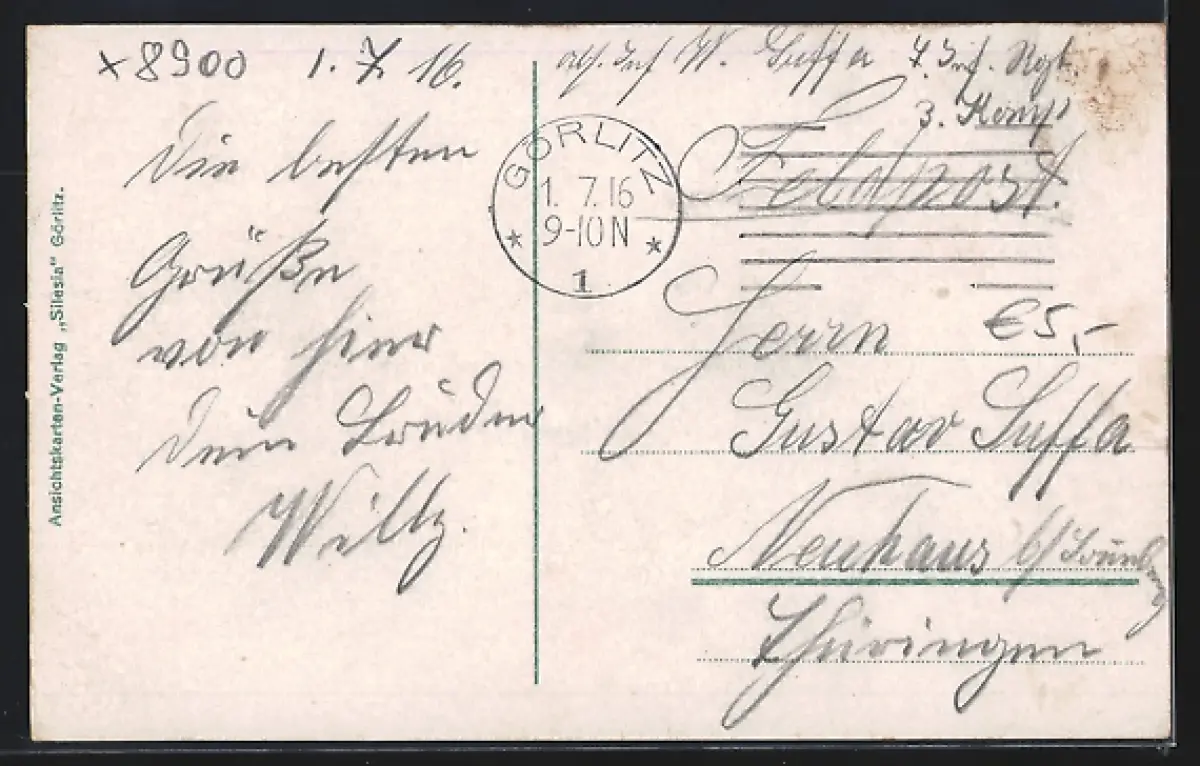 x 8900 1. 7. 16.
Die besten
Grüße
von hier
Dein Bruder
Willy.
Ansichtskarten-Verlag „Silesia" Görlitz.
W. Suffa 7. Inf. Rgt.
3. Komp
Feldpost.
GÖRLITZ
1. 7. 16
9-10 N
1
Herrn
€5,-
Gustav Suffa
Neuhaus b/Sonneberg
Thüringen